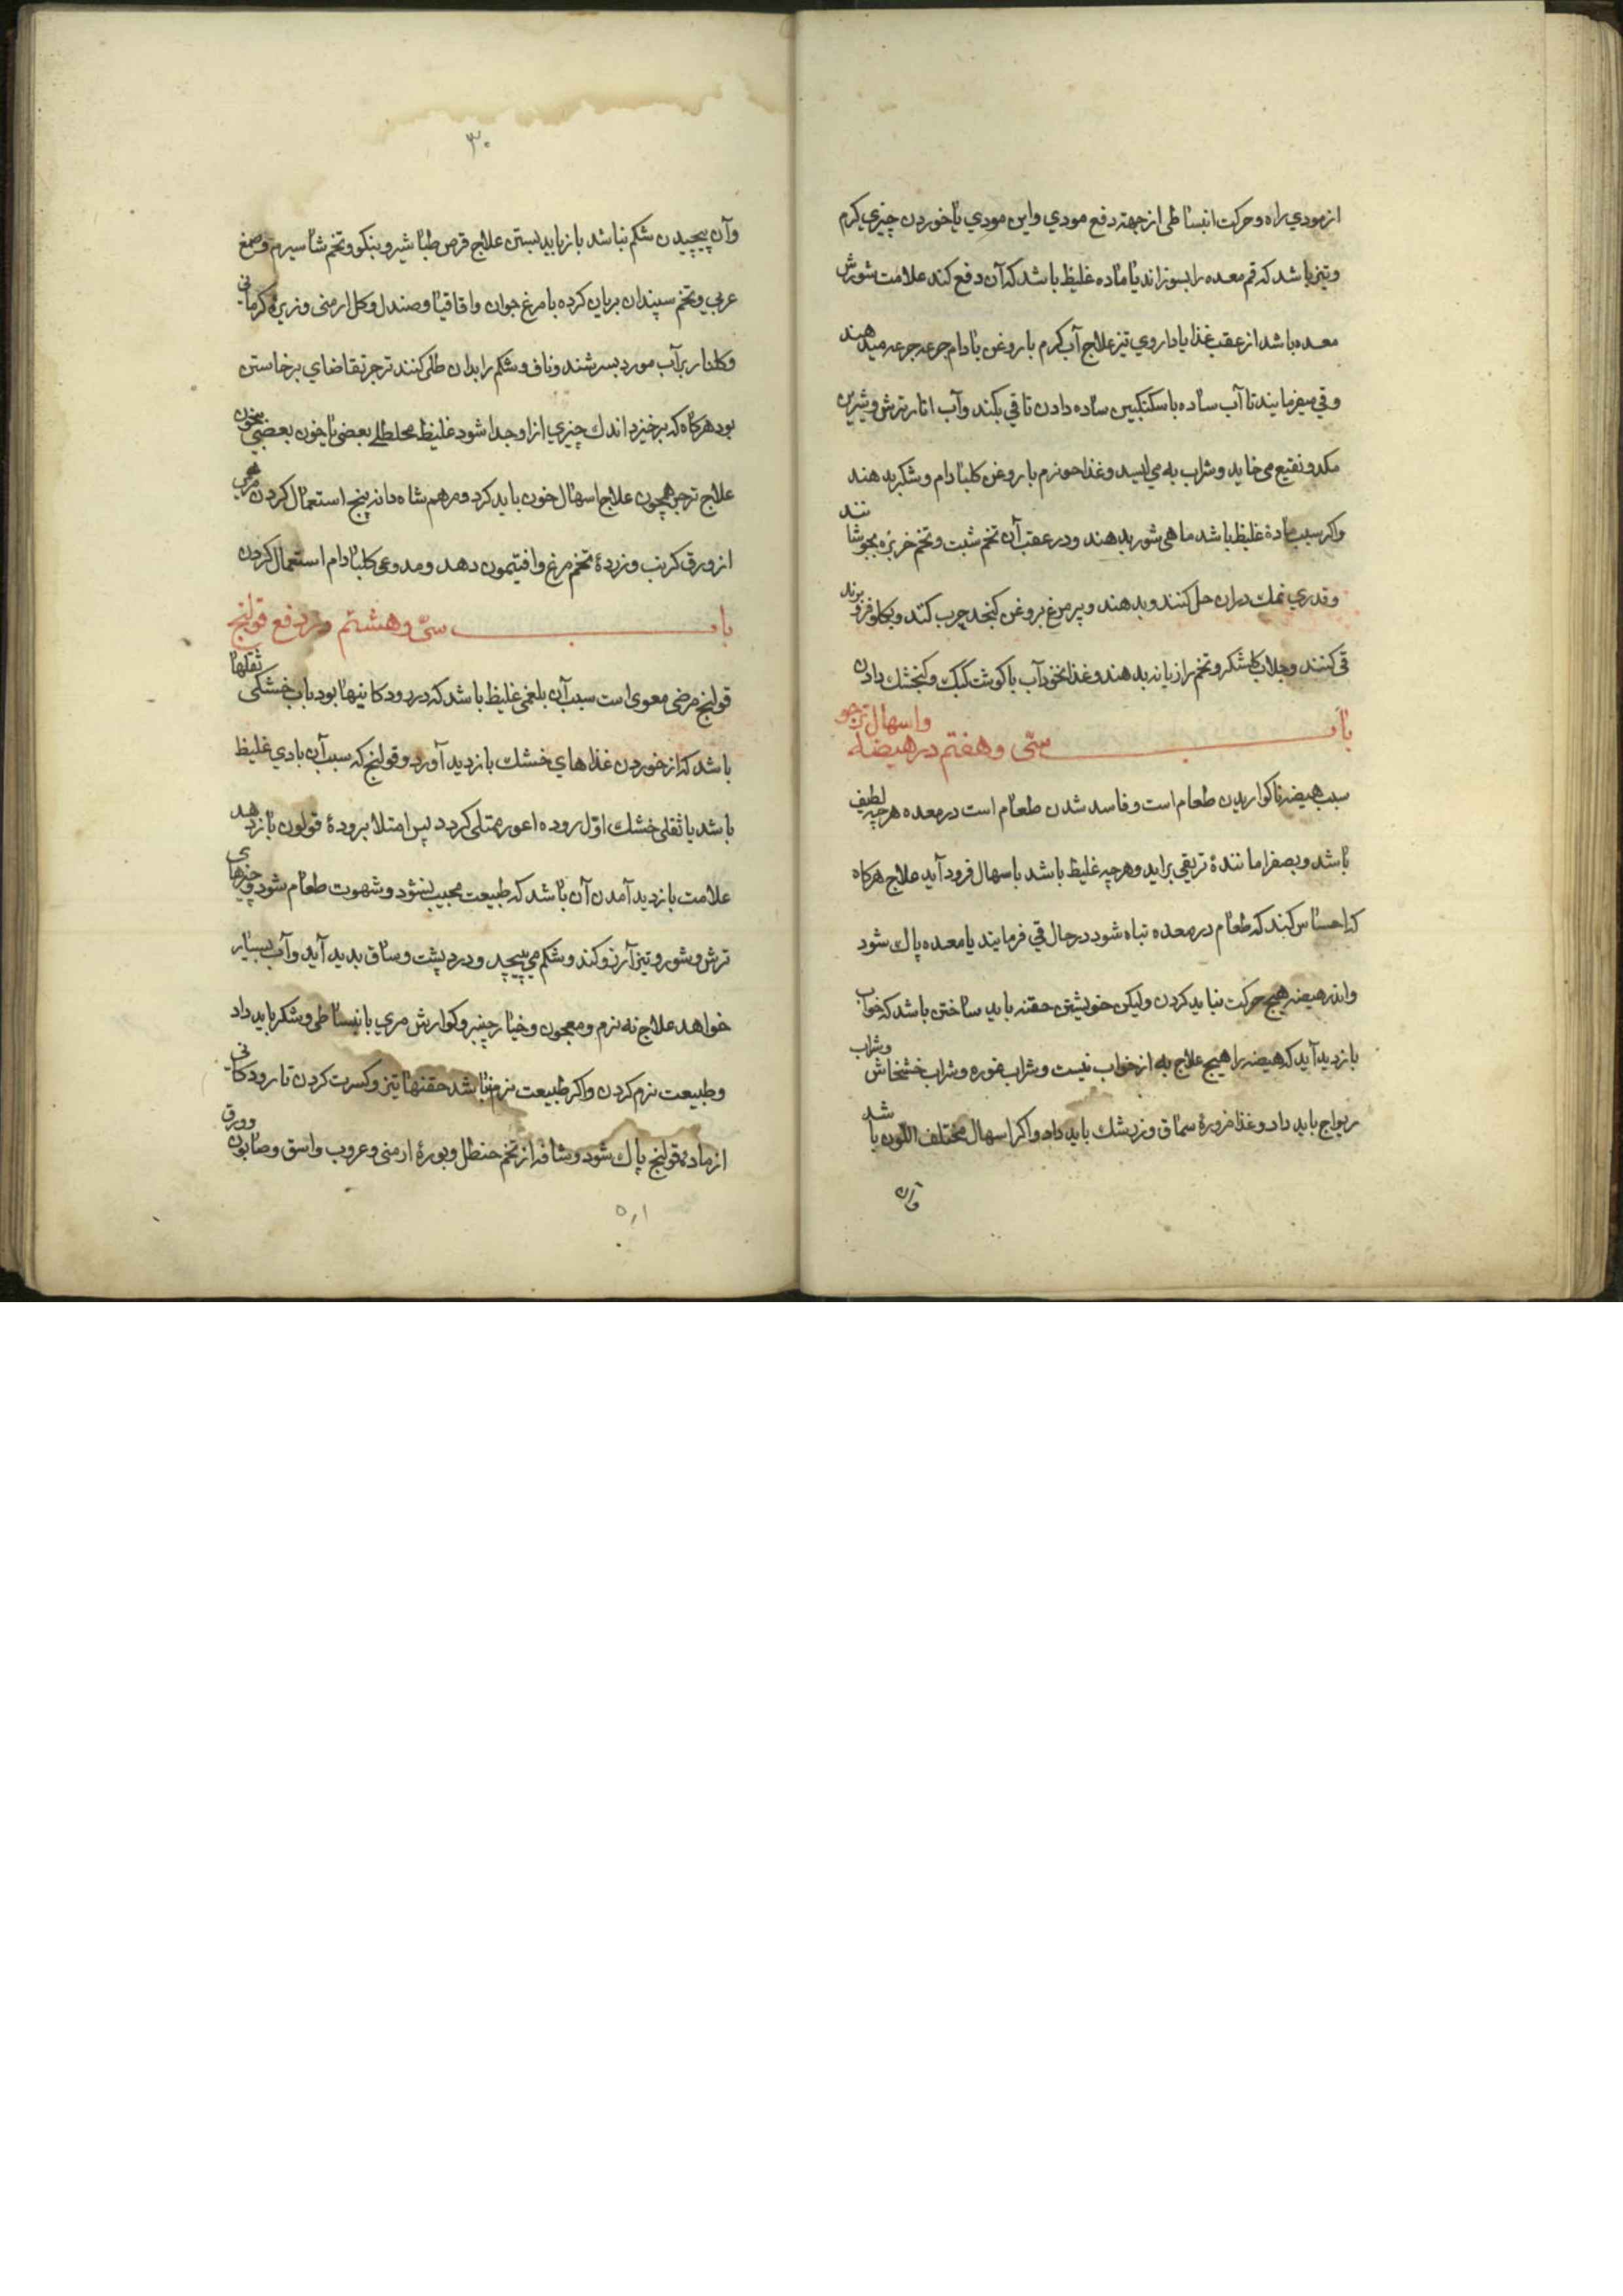 از مودي راه وحركت انبساطی از جهته دفع مودي واین مودي یا خوردن چیزي کرم
وتیز باشد که فم معده را بسوزاند یا ماده غلیظ باشد که آن دفع کند علامت شورش
معده باشد از عقب غذا یا داروي تیز علاج آب کرم با روغن بادام جرعه جرعه میدهند
وقي میفرمایند تا آب ساده با سکنکبین ساده دادن تا قي بکند وآب انار ترش وشیرین
مکد و نقیع می خاید وشراب به می لیسد وغذا حو نرم با روغن کلبادام وشکر بدهند
واکر سبب مادهٔ غلیظ باشد ماهی شور بدهند ودر عقب آن تخم شبت وتخم خربزه بجوشانند
وقدري نمك دران حل کنند وبدهند وپر مرغ بروغن کنجد چرب کنند وبکلو فرو برند
قی کنند وجلاب کاشکر وتخم رازیانه بدهند وغذا نخود آب با کوشت کبك وکنجشك دادن
باب سی وهفتم در هیضه واسهال ترجو
سبب هیضه ناکواریدن طعام است وفاسد شدن طعام است در معده هر چه لطیف
باشد وبصفرا مانندهٔ تر بقي براید وهر چه غلیظ باشد باسهال فرود آید علاج هرکاه
که احساس کند که طعام در معده تباه شود در حال قي فرمایند یا معده پاك شود
واندر هیضه هیچ حرکت نباید کردن ولیکن خویشتن حقنه باید ساختن باشد که خواب
بازدید آید که هیضه را هیچ علاج به از خواب نیست وشراب غوره وشراب خشخاش وشراب
ریواج باید داد وغذا مزورهٔ سماق وزرشك باید داد واکر اسهال مختلف اللون باشد
وآن
۳۰
وآن پیچیدن شکم نباشد باز باید بستن علاج قرص طباشیر وبنکو وتخم شاسپرم وصمغ
عربي وتخم سپندان بریان کرده با مرغ جوان واقاقیا وصندل وکل ارمنی وزیرهٔ کرمانی
وکلنار برآب مورد بسرشند وناف وشکم را بدان طلی کنند ترجر تقاضاي برخاستن
بود هرکاه که برخیزد اندك چیزي ازا وجدا شود غلیظ مخلطلے بعضی با خون بعضي بیخون
علاج ترجر همچون علاج اسهال خون باید کرد ومرهم شاه دانه پنج استعمال کردن
از ورق کرنب وزردهٔ تخم مرغ وافتیمون دهد و مدوعی کلبادام استعمال کردن
باب سیّ وهشتم در دفع قولنج
قولنج مرضی معوی است سبب آن بلغمی غلیظ باشد که در رودکانیها بود باب خشکی ثقلها
باشد که از خوردن غذاهاي خشك بازدید آورد وقولنج که سبب آن بادي غلیظ
باشد یا ثقلی خشك اوّل روده اعور ممتلی کردد پس امتلا برودهٔ قولون باز دهد
علامت بازدید آمدن آن باشد که طبیعت مجیب نشود وشهوت طعام شود وچیزهای
ترش وشور وتیز آرزو کند وشکم می پیچد ودرد پشت وساق بدید آید وآب بسیار
خواهد علاج نه نرم ومعجون وخیار چنبر وکوارش مري بانبساطی وشکر باید داد
وطبیعت نرم کردن واکر طبیعت نرم نباشد حقنها تیز وکسرت کردن تا رودکانی
از مادهٔ قولنج پاك شود وشافه از تخم حنظل وبورهٔ ارمنی وعروب واسق وصابون وورق